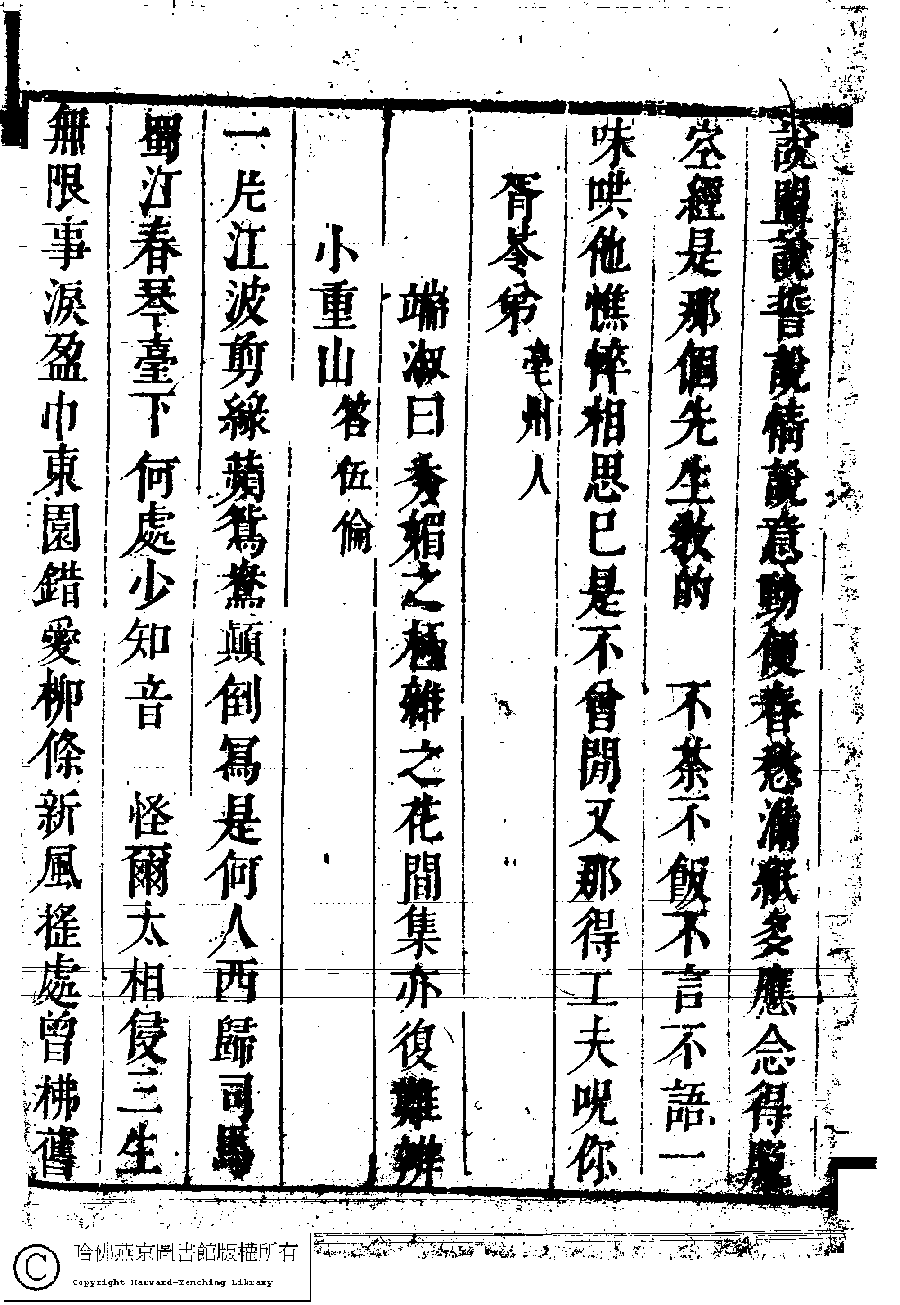 說盟說誓說情說意動便春愁滿紙多應念得脫
空經是那個先生教的　不茶不飯不言不語一
味哄他憔悴相思已是不曾閒又那得工夫呪你
胥苓弟 亳州人
端淑曰秀媚之極雜之花間集亦復難辨
小重山 答伍倫
一片江波剪綠蘋鴛鴦顛倒寫是何人西歸司馬
蜀江春琴臺下何處少知音　怪爾太相侵三生
無限事淚盈巾東園錯愛柳條新風搖處曾拂舊
哈佛燕京圖書館版權所有
Copyright Harvard-Yenching Library